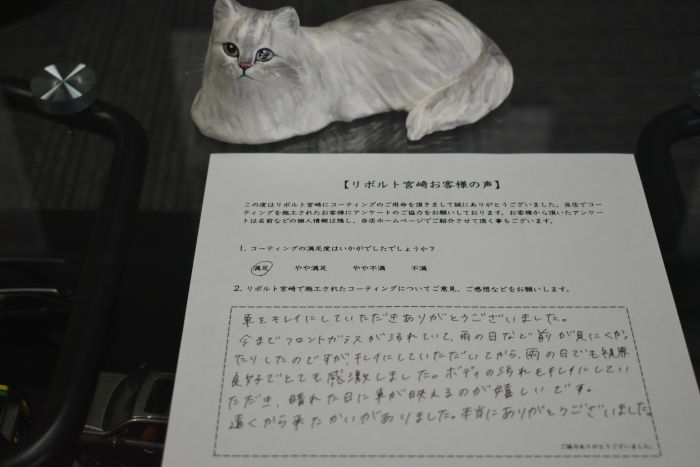 【リボルト宮崎お客様の声】
この度はリボルト宮崎にコーティングのご用命を頂きまして誠にありがとうございました。当店でコー
ティングを施工されたお客様にアンケートのご協力をお願いしております。お客様から頂いたアンケー
トは名前などの個人情報は隠し、当店ホームページでご紹介させて頂く事もございます。
1. コーティングの満足度はいかがでしたでしょうか?
満足 やや満足 やや不満 不満
2. リボルト宮崎で施工されたコーティングについてご意見、ご感想などをお願いします。
車をキレイにしていただきありがとうございました。
今までフロントガラスが汚れていて、雨の日など前が見にくか
たりしたのですがキレイにしていただいてから、雨の日でも視界
良好でとても感激しました。ボディの汚れもキレイにしてい
ただき、晴れた日に車が映えるのが嬉しいです。
遠くから来たかいがありました。本当にありがとうございました。
ご協力ありがとうございました。